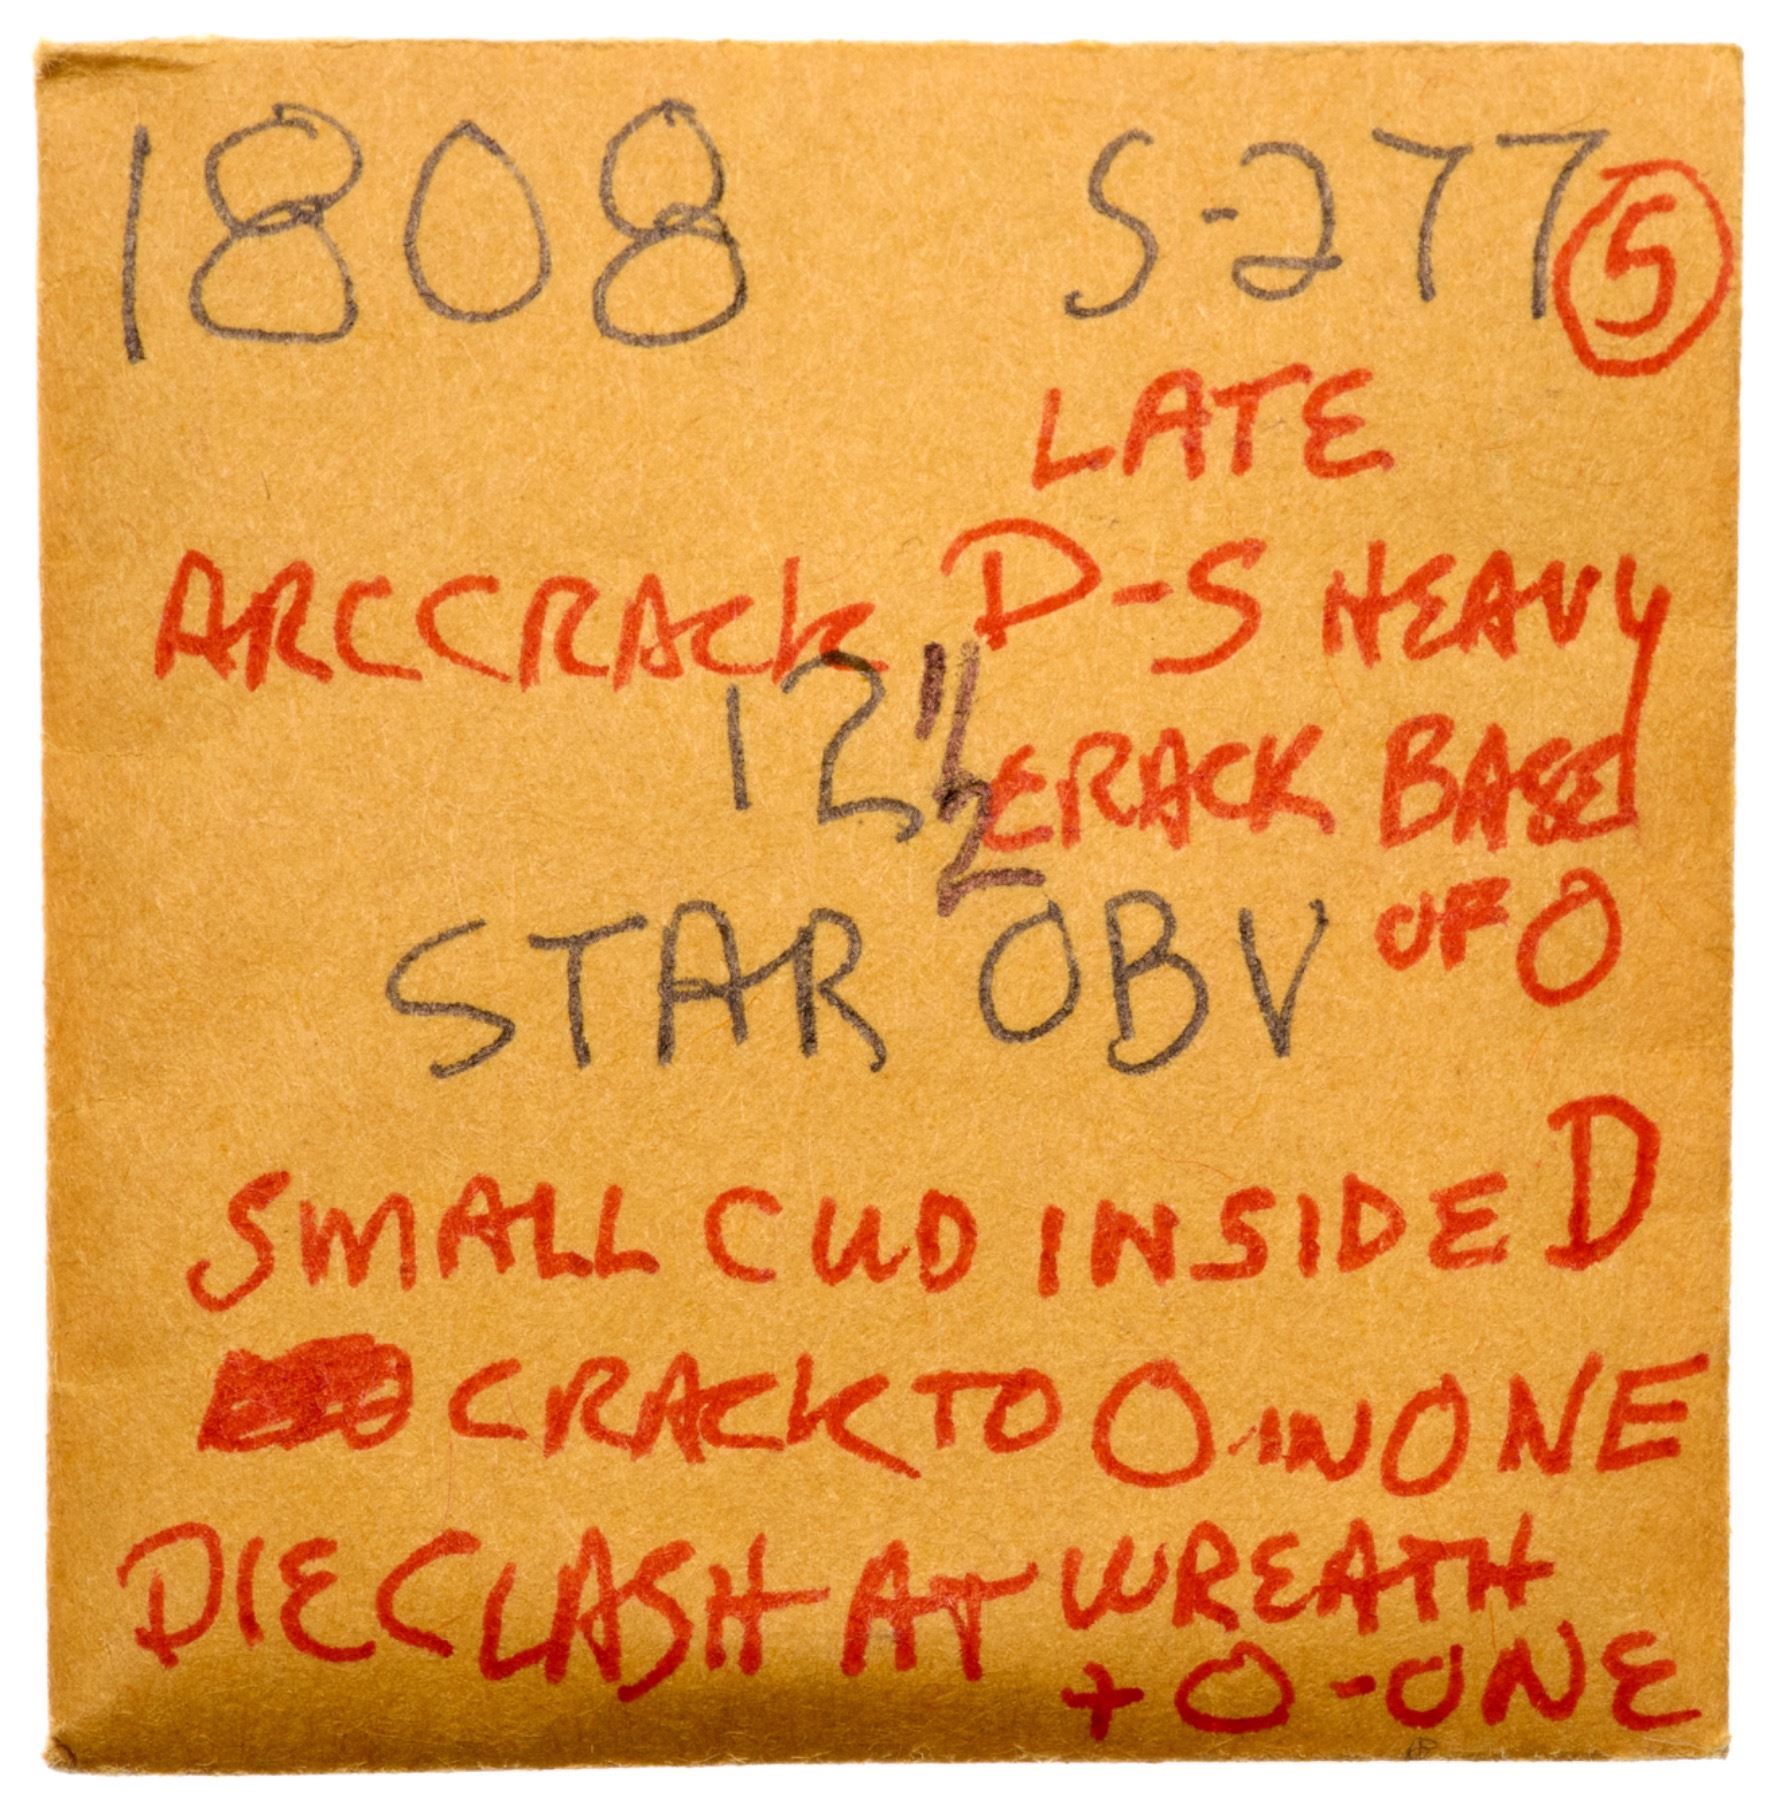 1808 S-277 (5)
LATE
ARC CRACK D-S HEAVY
12 1/2 CRACK BASE
STAR OBV OF O
SMALL CUD INSIDE D
CRACK TO O IN ONE
DIE CLASH AT WREATH
+ O-ONE